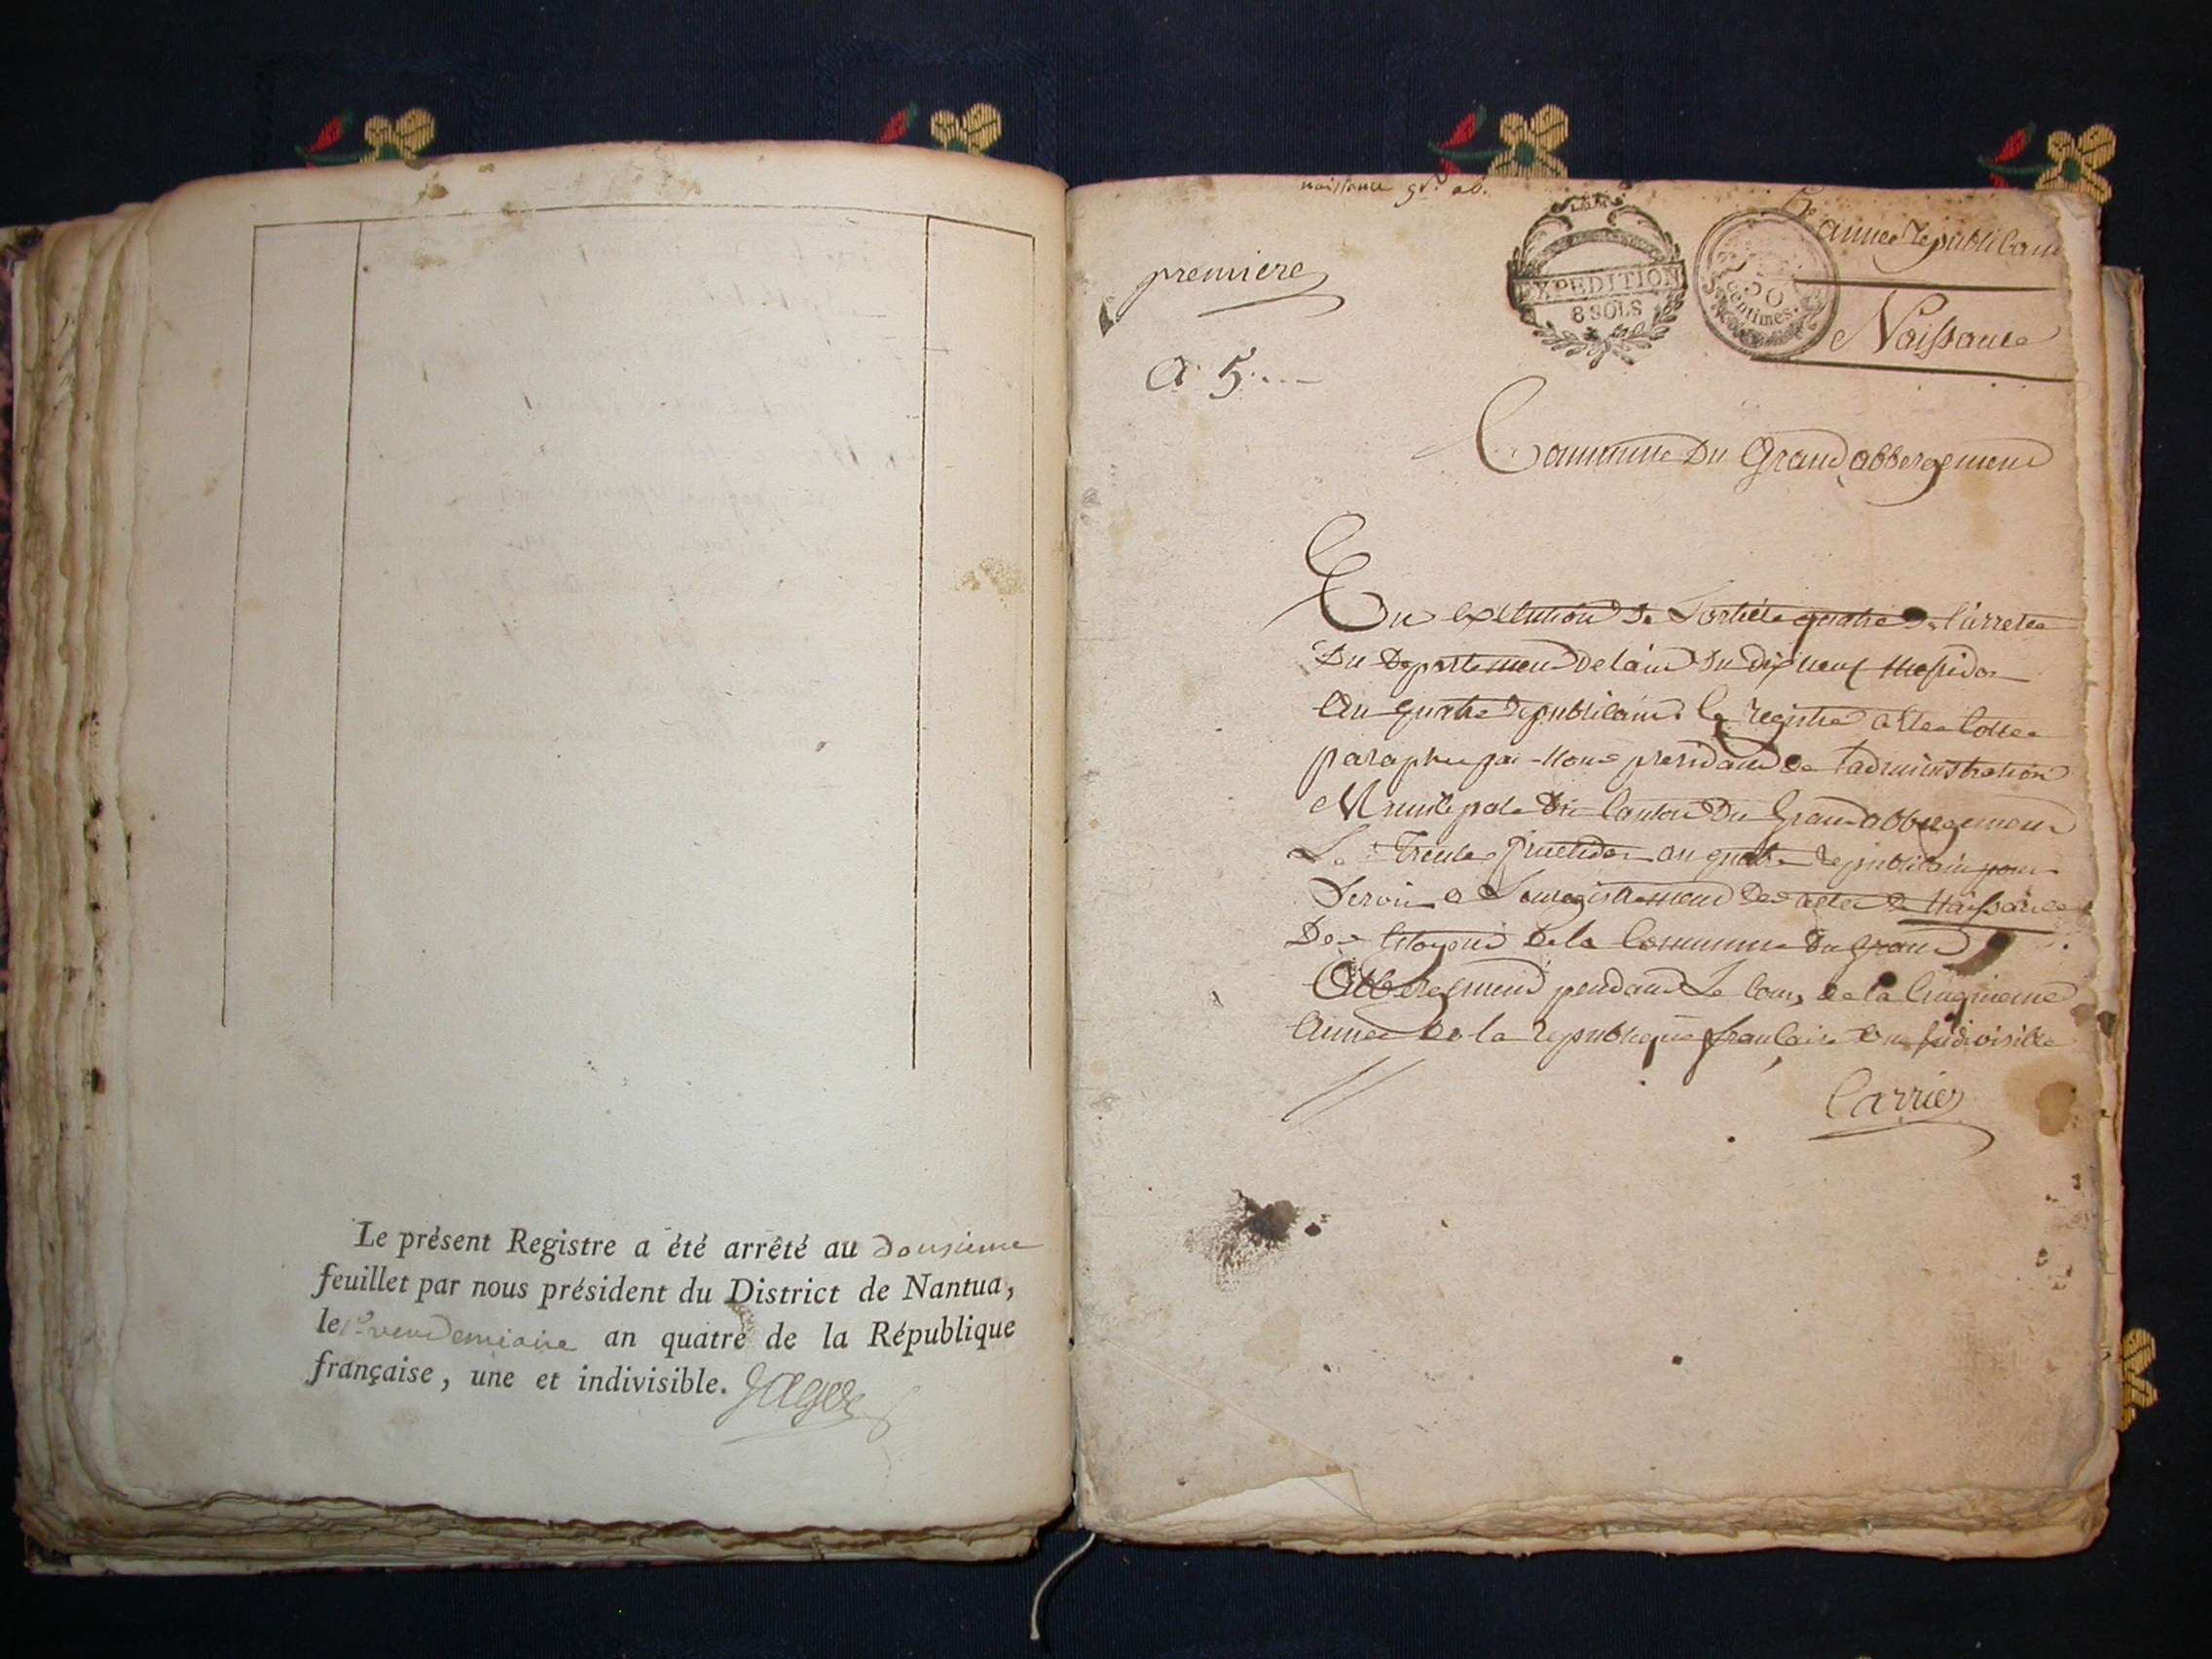 Le présent Registre a été arrêté au dousieme
feuillet par nous président du District de Nantua,
le 1er vendemiaire an quatre de la République
française, une et indivisible.
naissance gr. ab.
premiere
a 5
EXPEDITION
8 SOLS
50
centimes.
5e
annee republicaine
Naissance
Commune du Grand abbergement
En execution de Larticle quatre de l'arreté
Du Departement de l'ain du dix neuf messidor
an quatre republicain. Le registre a été cotté
paraphé par nous president de l'administration
Municipale du canton du Grand abbergement
Le trente fructidor an quatre republicain pour
Servir a Lenregistrement des actes de Naissance
Des Citoyens de la Commune du grand
Abbergement pendant Le cours de la cinquieme
annee de la republique francaise une indivisible
Carrier